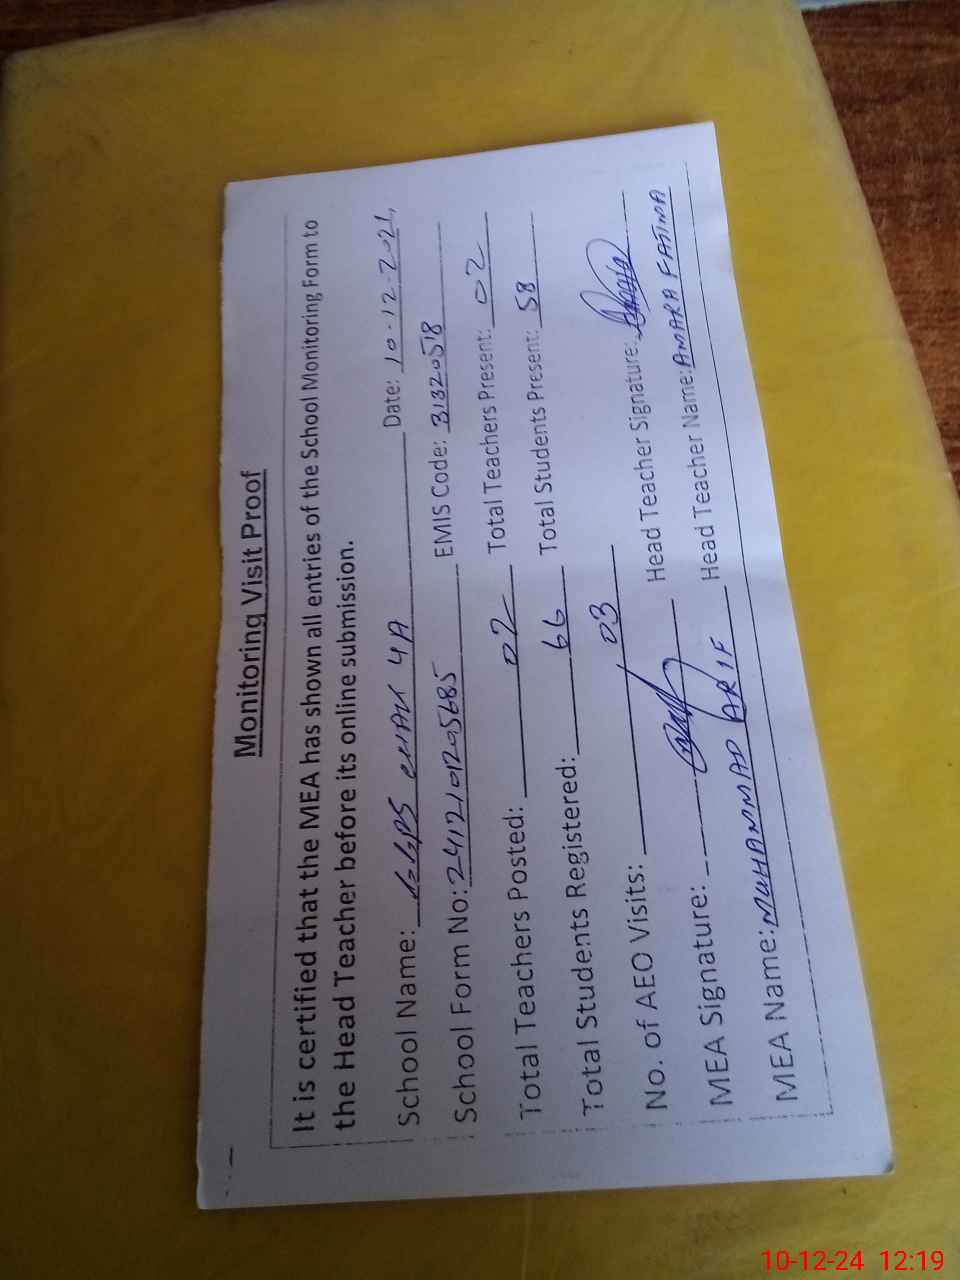 Monitoring Visit Proof
It is certified that the MEA has shown all entries of the School Monitoring Form to
the Head Teacher before its online submission.
School Name: GGPS CHAK 4A Date: 10-12-2024
School Form No: 2412101205685 EMIS Code: 31320518
Total Teachers Posted: 02 Total Teachers Present: 02
Total Students Registered: 66 Total Students Present: 58
No. of AEO Visits: 03
MEA Signature: Head Teacher Signature:
MEA Name: MUHAMMAD ARIF Head Teacher Name: AMARA FATIMA
10-12-24 12:19